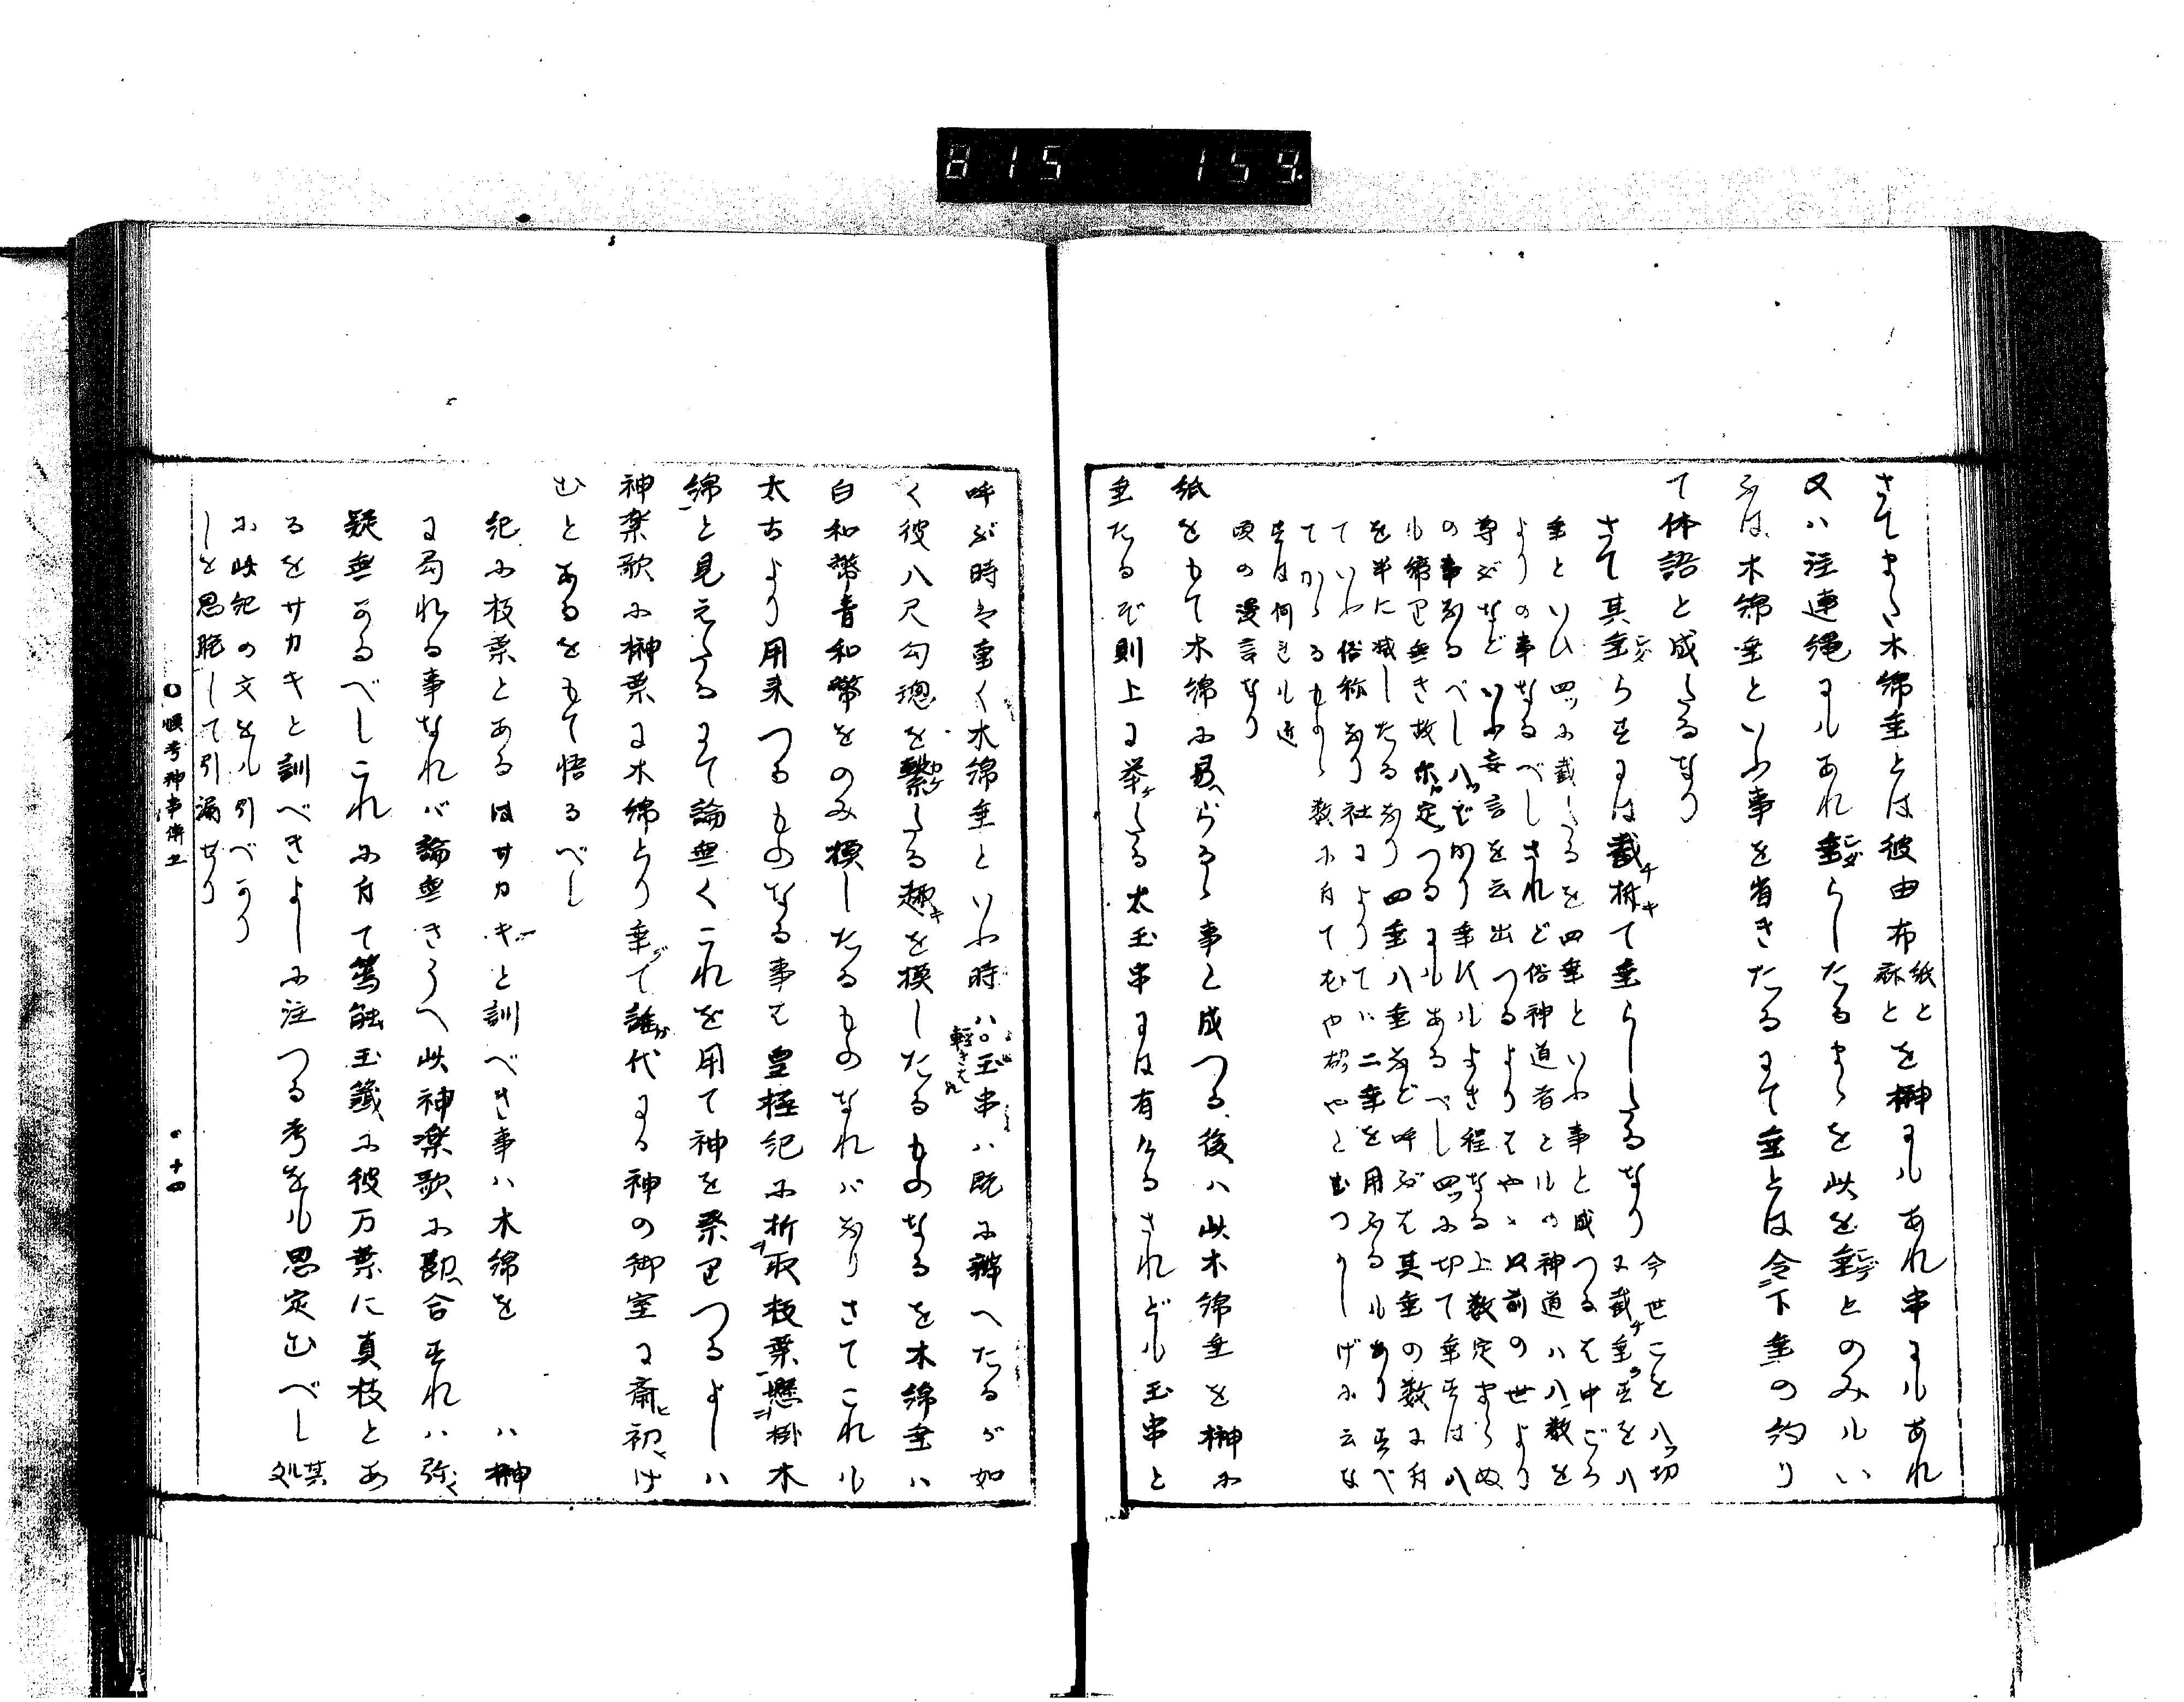 815 159
さてまた木綿垂とは彼由布紙と麻とを榊にもあれ串にもあれ
又ハ注連縄にもあれ垂らしたるまゝを此を垂とのみもい
ふは木綿垂といふ事を省きたるにて垂とは令下垂の約り
て体語と成たるなり
さて其垂らすには截折て垂らしたるなり今世ことを八ツ切
に截垂すを八
垂といひ四ツに截たるを四垂といふ事と成つるは中ごろ
よりの事なるべしされど俗神道者ともの神道ハ八数を
尊ぶなどいふ妄言を云出つるよりはやゝ以前の世より
の事なるべし八ツばかり垂てもよき程なる上数定まらぬ
も締り無き故ホ定つるにもあるべし四ツに切て垂すは八
を半に減したるなり四垂八垂など呼ぶは其垂の数に付
ていふ俗称なり社によりてハ二垂を用ふるもありすべ
てかゝるものゝ数に付てむやむやと出つかしげに云な
すは何きも近
頃の漫言なり
紙をもて木綿に易らるゝ事と成つる後ハ此木綿垂を榊に
垂たるぞ則上に挙たる太玉串には有けるされども玉串と
呼ぶ時は重く木綿垂といふ時ハ軽き玉串ハ既に辨へたるが如
く彼八尺勾璁を繋たる趣を模したるものなるを木綿垂ハ
白和幣青和幣をのみ模したるものなればなりさてこれも
太古より用来つるものなる事は皇極紀に折取枝葉懸掛木
綿と見えたるにて論無くこれを用て神を祭りつるよしハ
神楽歌に榊葉に木綿とり垂て誰が代にか神の御室に斎初け
むとあるをもて悟るべし
紀に枝葉とあるはサカキと訓べき事ハ木綿をハ榊
に局れる事なれバ論無きうへ此神楽歌に勘合すれハ弥
疑無かるべしこれに付て篤能玉籤に彼万葉に真枝とあ
るをサカキと訓べきよしに注つる考をも思定むべし其処
に此紀の文をも引べかり
しを思脱して引漏せり
○慎考神事傳上 十四